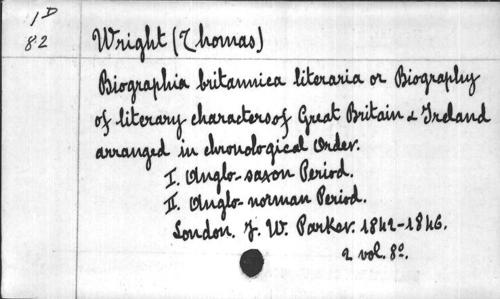 1D
82
Wright (Thomas)
Biographia britannica literaria or Biography
of literary characters of Great Britain & Ireland
arranged in chronological Order.
I. Anglo-saxon Period.
II. Anglo-norman Period.
London. J. W. Parker. 1842-1846.
2 vol. 8º.